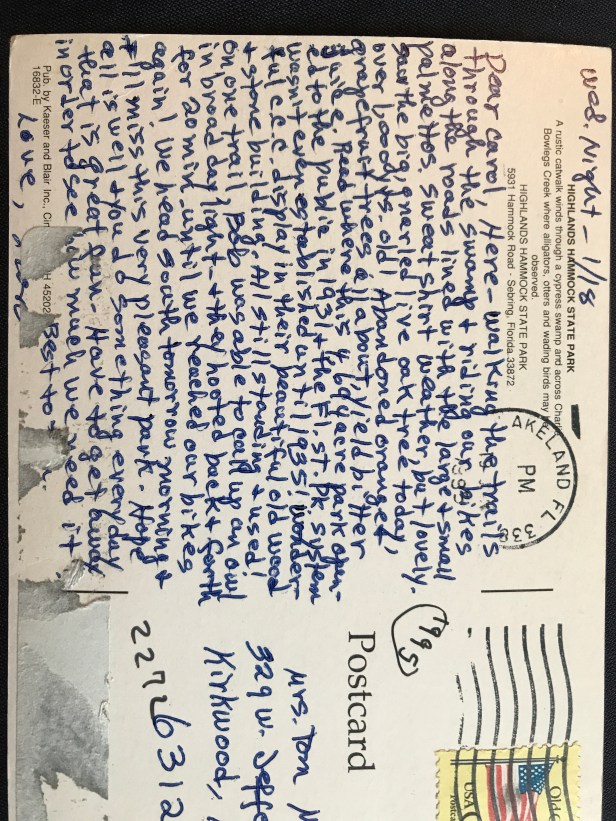 Wed. Night - 1/18
HIGHLANDS HAMMOCK STATE PARK
A rustic catwalk winds through a cypress swamp and across Charl
Bowlegs Creek where alligators, otters and wading birds may be
observed.
HIGHLANDS HAMMOCK STATE PARK
5931 Hammock Road - Sebring, Florida 33872
Dear Carol, Here - walking the trails
through the swamp & riding our bikes
along the roads lined with the large & small
palmettos. sweatshirt weather, but lovely.
Saw the big, gnarled live oak tree today,
over 1,000 yrs old. Abandoned orange &
grapefruit trees all about, yield bitter
juice. Read where this acre park open-
ed to the public in 1931 & the Fl. St. Pk system
wasn't even established until 1935! Wonder-
ful C.C.C. display in their beautiful old wood
& stone building. All still standing & used!
on one trail, Bob was able to call up an owl
in broad daylight & they hooted back & forth
for 20 min. until we reached our bikes
again! We head south tomorrow morning &
I'll miss this very pleasant park - Hope
all is well & you do something everyday
that is great Have to get away
in order to see how much we need it.
Love, Best to
Pub. by Kaeser and Blair Inc., Cin H 45202
16832-E
AKELAND FL
PM
1995
33
(1995)
Postcard
Mrs. Tom M
329 W. Jeffe
Kirkwood,
22726312
Old G
USA
Postca